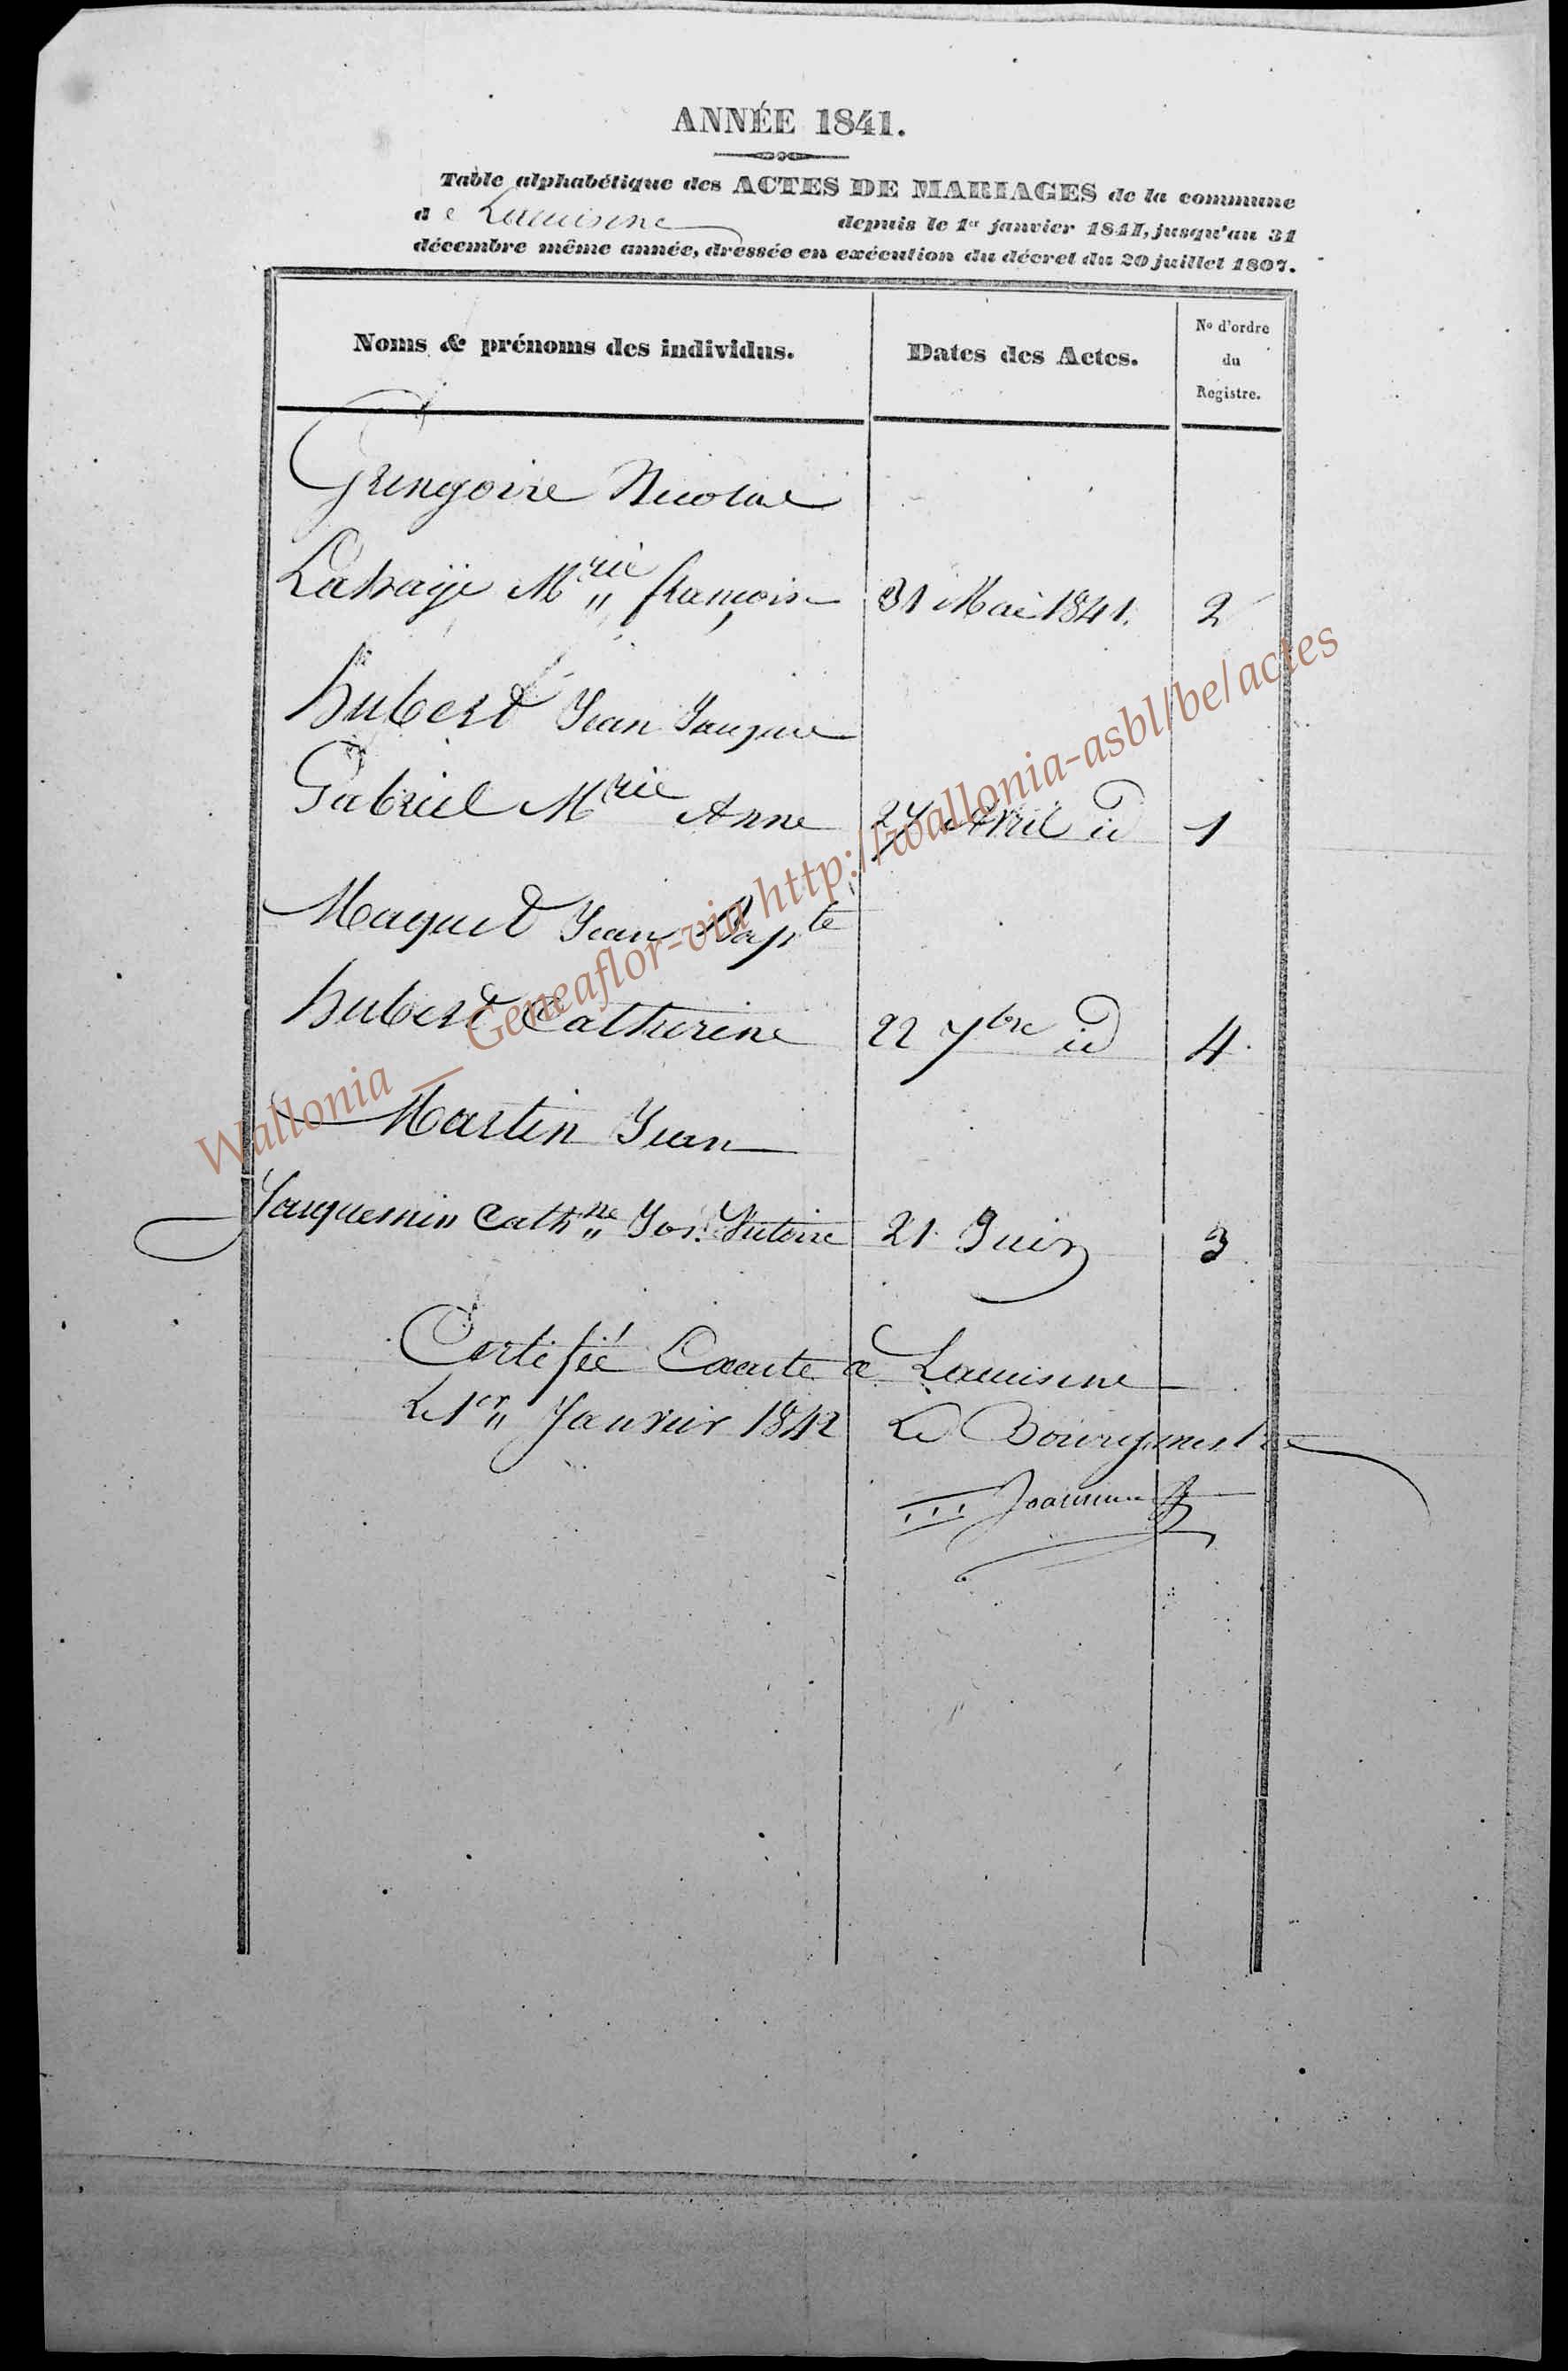 ANNÉE 1841.
Table alphabétique des ACTES DE MARIAGES de la commune
de Lacuisine depuis le 1er janvier 1841, jusqu'au 31
décembre même année, dressée en exécution du décret du 20 juillet 1807.
Noms & prénoms des individus. Dates des Actes. No d'ordre du Registre.
Gringoire Nicolas
Lahaÿe Mrie françoise 31 Mai 1841. 2
hubert Jean Jacques
Gabriel Mrie Anne 27 Avril id 1
Maquet Jean Bapte
hubert Catherine 22 7bre id 4
Martin Jean
Jacquemin Cathne Jos. Victoire 21 Juin 3
Certifié Exacte a Lacuisine
Le 1er Janvier 1842 Le Bourgmestre
Wallonia — Geneaflor-via http://wallonia-asbl/be/actes